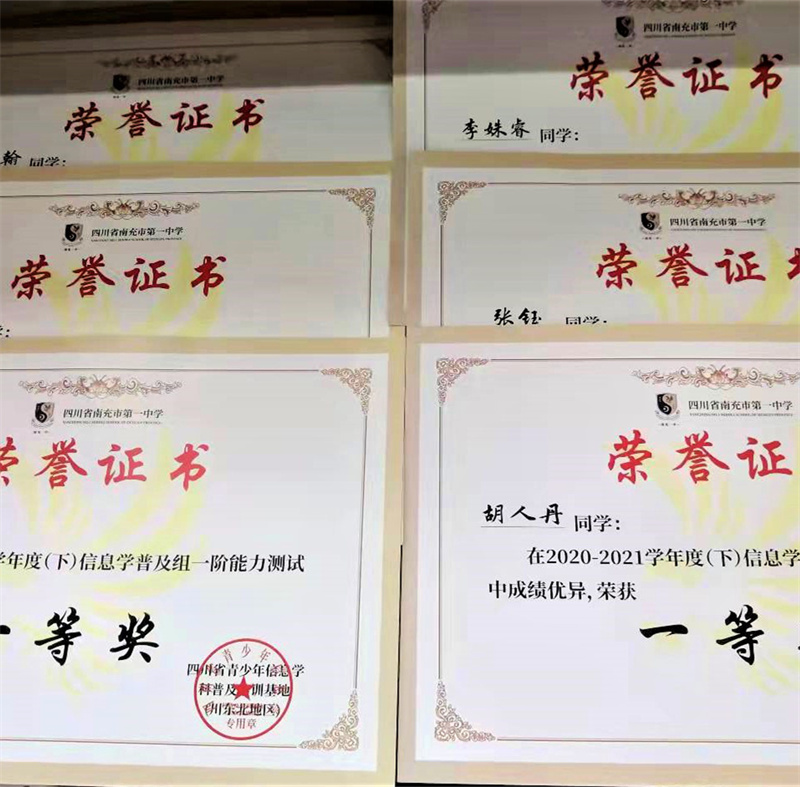 四川省南充市第一中学
荣誉证书
翰 同学:
四川省南充市第一中学
荣誉证书
李姝睿 同学:
四川省南充市第一中学
荣誉证书
四川省南充市第一中学
荣誉证书
张钰 同学:
四川省南充市第一中学
荣誉证书
学年度(下)信息学普及组一阶能力测试
一等奖
四川省青少年信息学
科普及 训基地
(川东北地区)
专用章
四川省南充市第一中学
荣誉证
胡人丹 同学:
在2020-2021学年度(下)信息学
中成绩优异, 荣获
一等